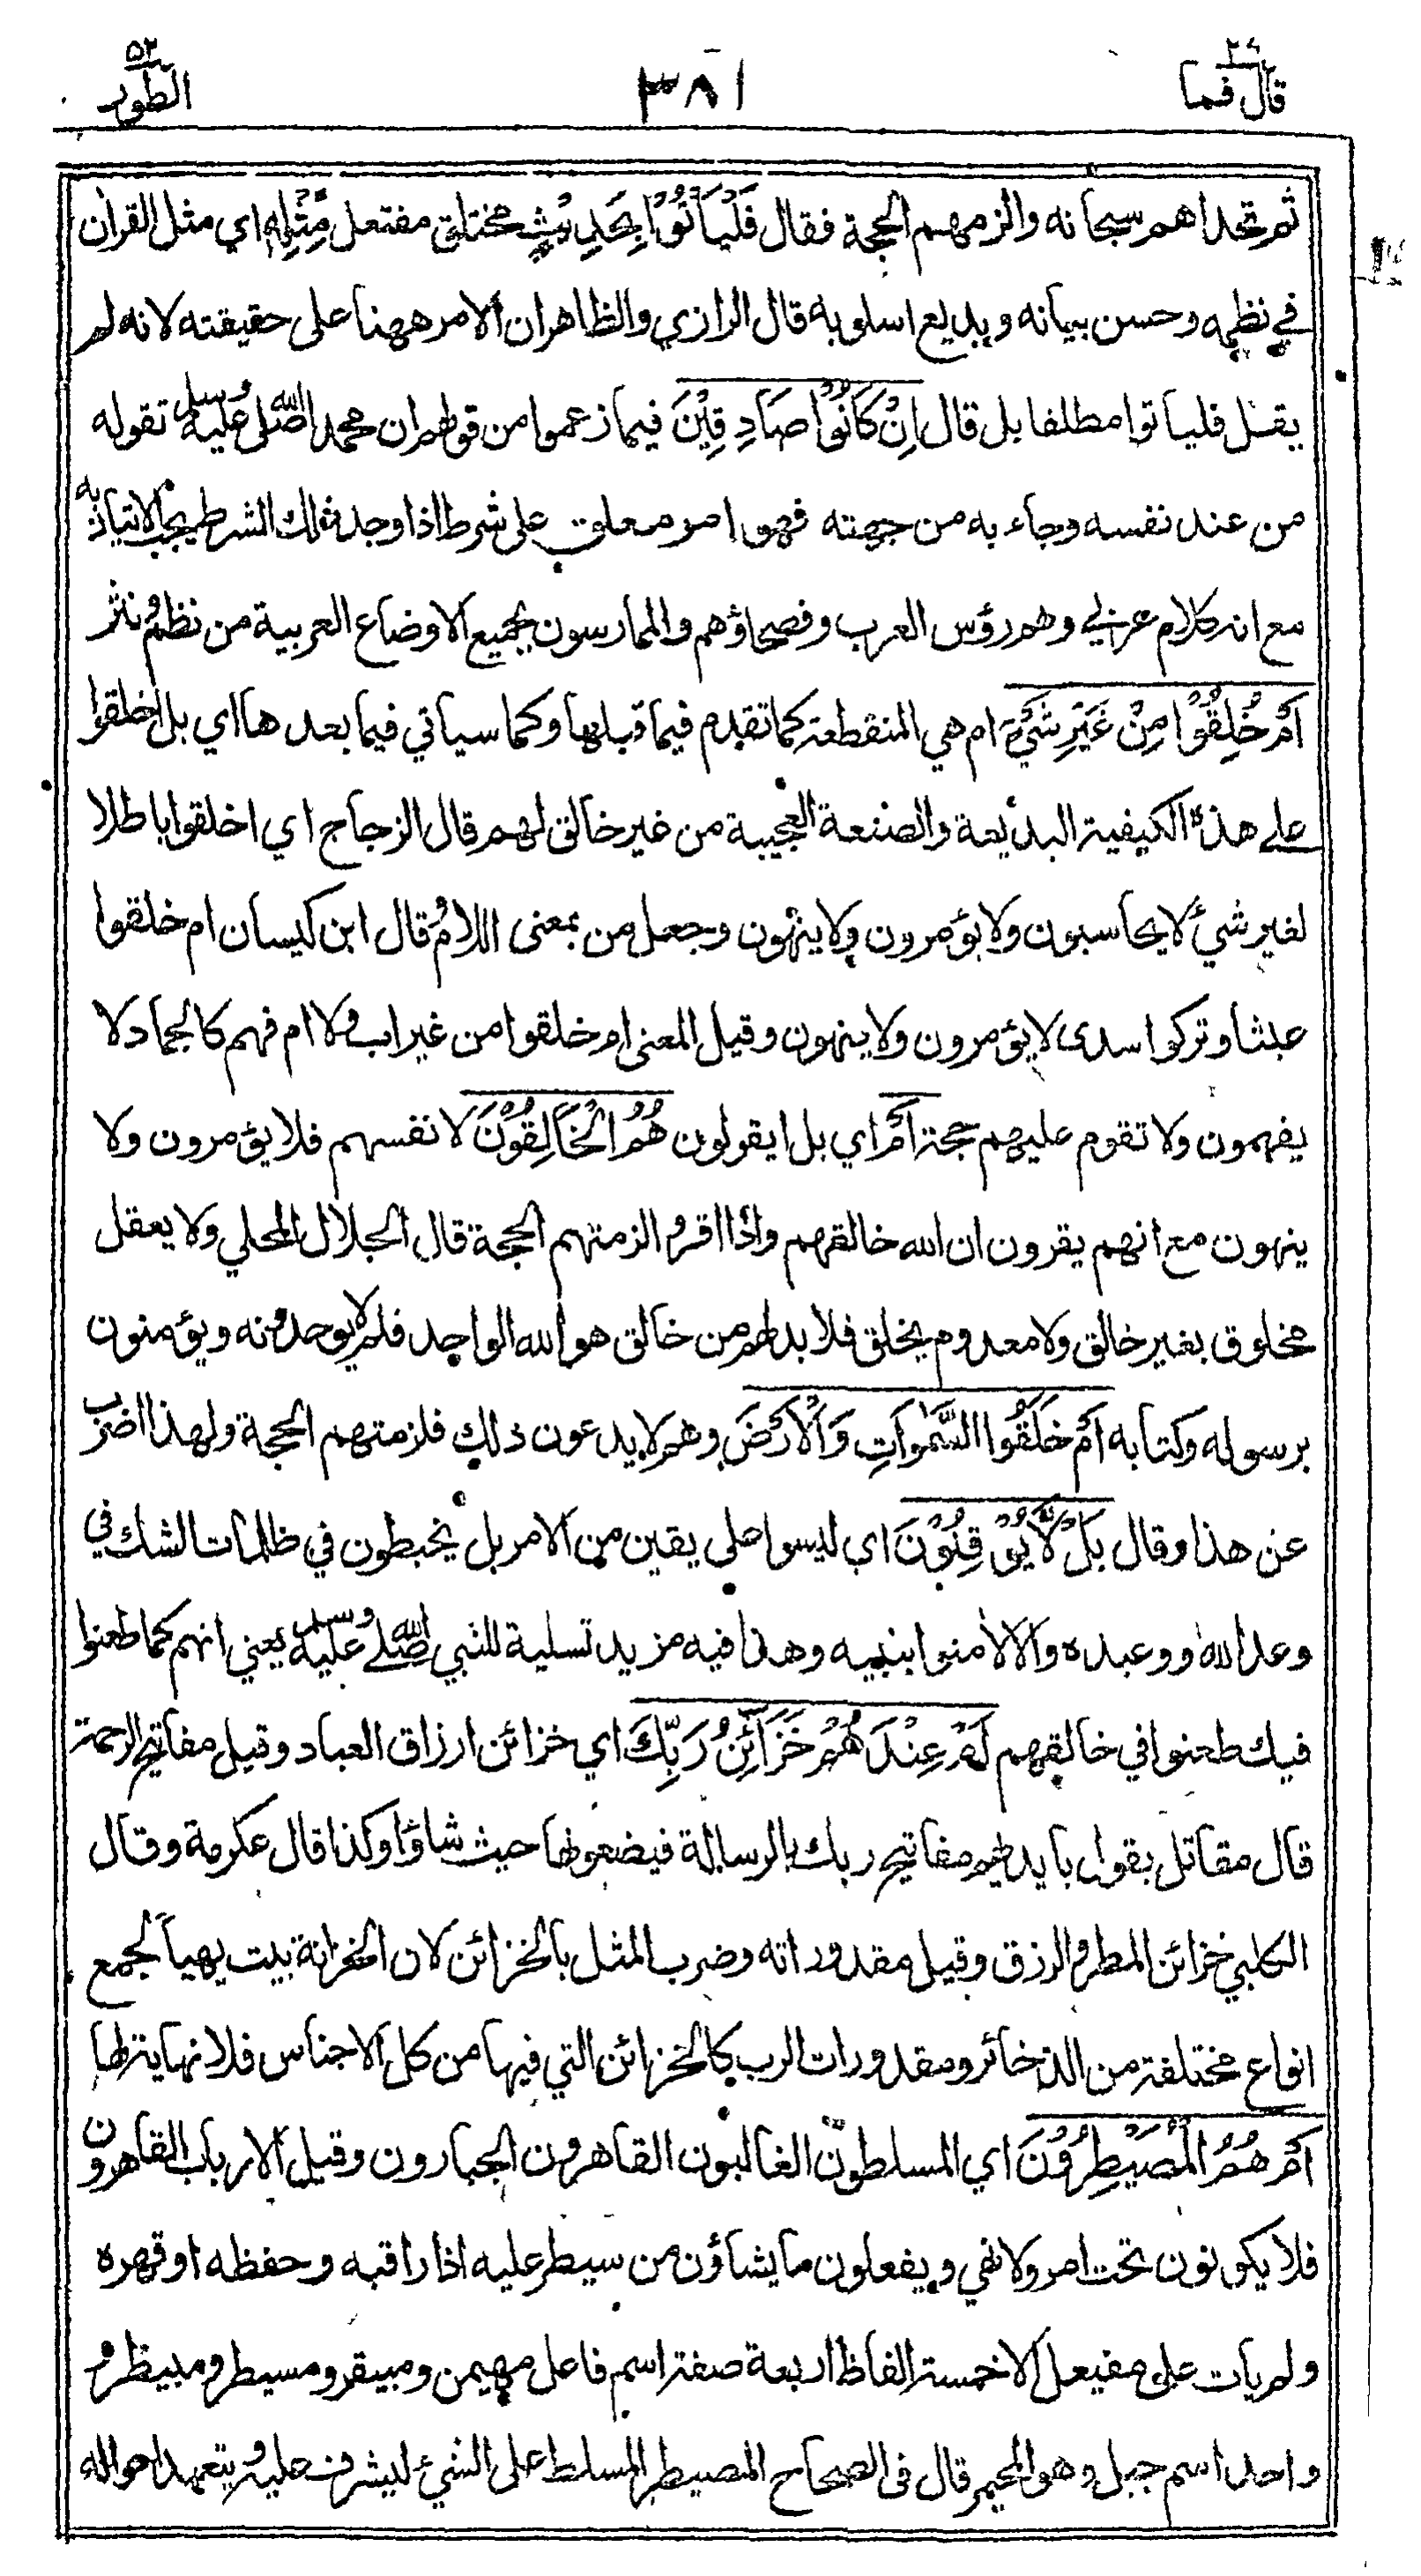 قال فما ٢٧
٣٨١
الطور ٥٢
ثم تحداهم سبحانه والزمهم الحجة فقال فَلْيَأْتُوْا بِحَدِيْثٍ مختلق مفتعل مِّثْلِهٖ اي مثل القران
في نظمه وحسن بيانه وبديع اسلوبه قال الرازي والظاهران الامر ههنا على حقيقته لانه لم
يقل فلياتوا مطلقا بل قال اِنْ كَانُوْا صَادِقِيْنَ فيما زعموا من قولهم ان محمدا صلى الله عليه وسلم تقوله
من عند نفسه وجاء به من جهته فهو امر معلق على شرط اذا وجد ذلك الشرط يجب الاتيان به
مع انه كلام عربي وهم رؤس العرب وفصحاؤهم والممارسون بجميع الاوضاع العربية من نظم ونثر
اَمْ خُلِقُوْا مِنْ غَيْرِ شَيْءٍ ام هي المنقطعة كما تقدم فيما قبلها وكما سياتي فيما بعدها اي بل اخلقوا
على هذه الكيفية البديعة والصنعة العجيبة من غير خالق لهم قال الزجاج اي اخلقوا باطلا
لغير شيء لا يحاسبون ولا يؤمرون ولا ينهون وجعل من بمعنى اللام وقال ابن كيسان ام خلقوا
عبثا وتركوا سدى لا يؤمرون ولا ينهون وقيل المعنى ام خلقوا من غير اب ولا ام فهم كالجماد لا
يفهمون ولا تقوم عليهم حجة اَمْ اي بل ايقولون هُمُ الْخَالِقُوْنَ لانفسهم فلا يؤمرون ولا
ينهون مع انهم يقرون ان الله خالقهم واذا اقروا لزمتهم الحجة قال الجلال المحلي ولا يعقل
مخلوق بغير خالق ولا معدوم يخلق فلا بد لهم من خالق هو الله الواحد فلم لا يوحدونه ويؤمنون
برسوله وكتابه اَمْ خَلَقُوا السَّمٰوٰاتِ وَالْاَرْضَ وهم لا يدعون ذلك فلزمتهم الحجة ولهذا اضرب
عن هذا وقال بَلْ لَّا يُوْقِنُوْنَ اي ليسوا على يقين من الامر بل يخبطون في ظلمات الشك في
وعد الله ووعيده والا لامنوا بنبيه وهذا فيه مزيد تسلية للنبي صلى الله عليه وسلم يعني انهم كما طعنوا
فيك طعنوا في خالقهم اَمْ عِنْدَهُمْ خَزَآئِنُ رَبِّكَ اي خزائن ارزاق العباد وقيل مفاتيح الرحمة
قال مقاتل يقول بايديهم مفاتيح ربك بالرسالة فيضعونها حيث شاؤا وكذا قال عكرمة وقال
الكلبي خزائن المطر والرزق وقيل مقدوراته وضرب المثل بالخزائن لان الخزانة بيت يهيأ لجمع
انواع مختلفة من الذخائر ومقدورات الرب كالخزائن التي فيها من كل الاجناس فلا نهاية لها
اَمْ هُمُ الْمُصَيْطِرُوْنَ اي المسلطون الغالبون القاهرون الجبارون وقيل الارباب القاهرون
فلا يكونون تحت امر ولا نهي ويفعلون ما يشاؤن من سيطر عليه اذا راقبه وحفظه او قهره
ولم يات على مفيعل الا خمسة الفاظ اربعة صفة اسم فاعل مهيمن ومبيقر ومسيطر ومبيطر و
واحد اسم جبل وهو المجيمر قال فى الصحاح المصيطر المسلط على الشيء ليشرف عليه ويتعهد احواله